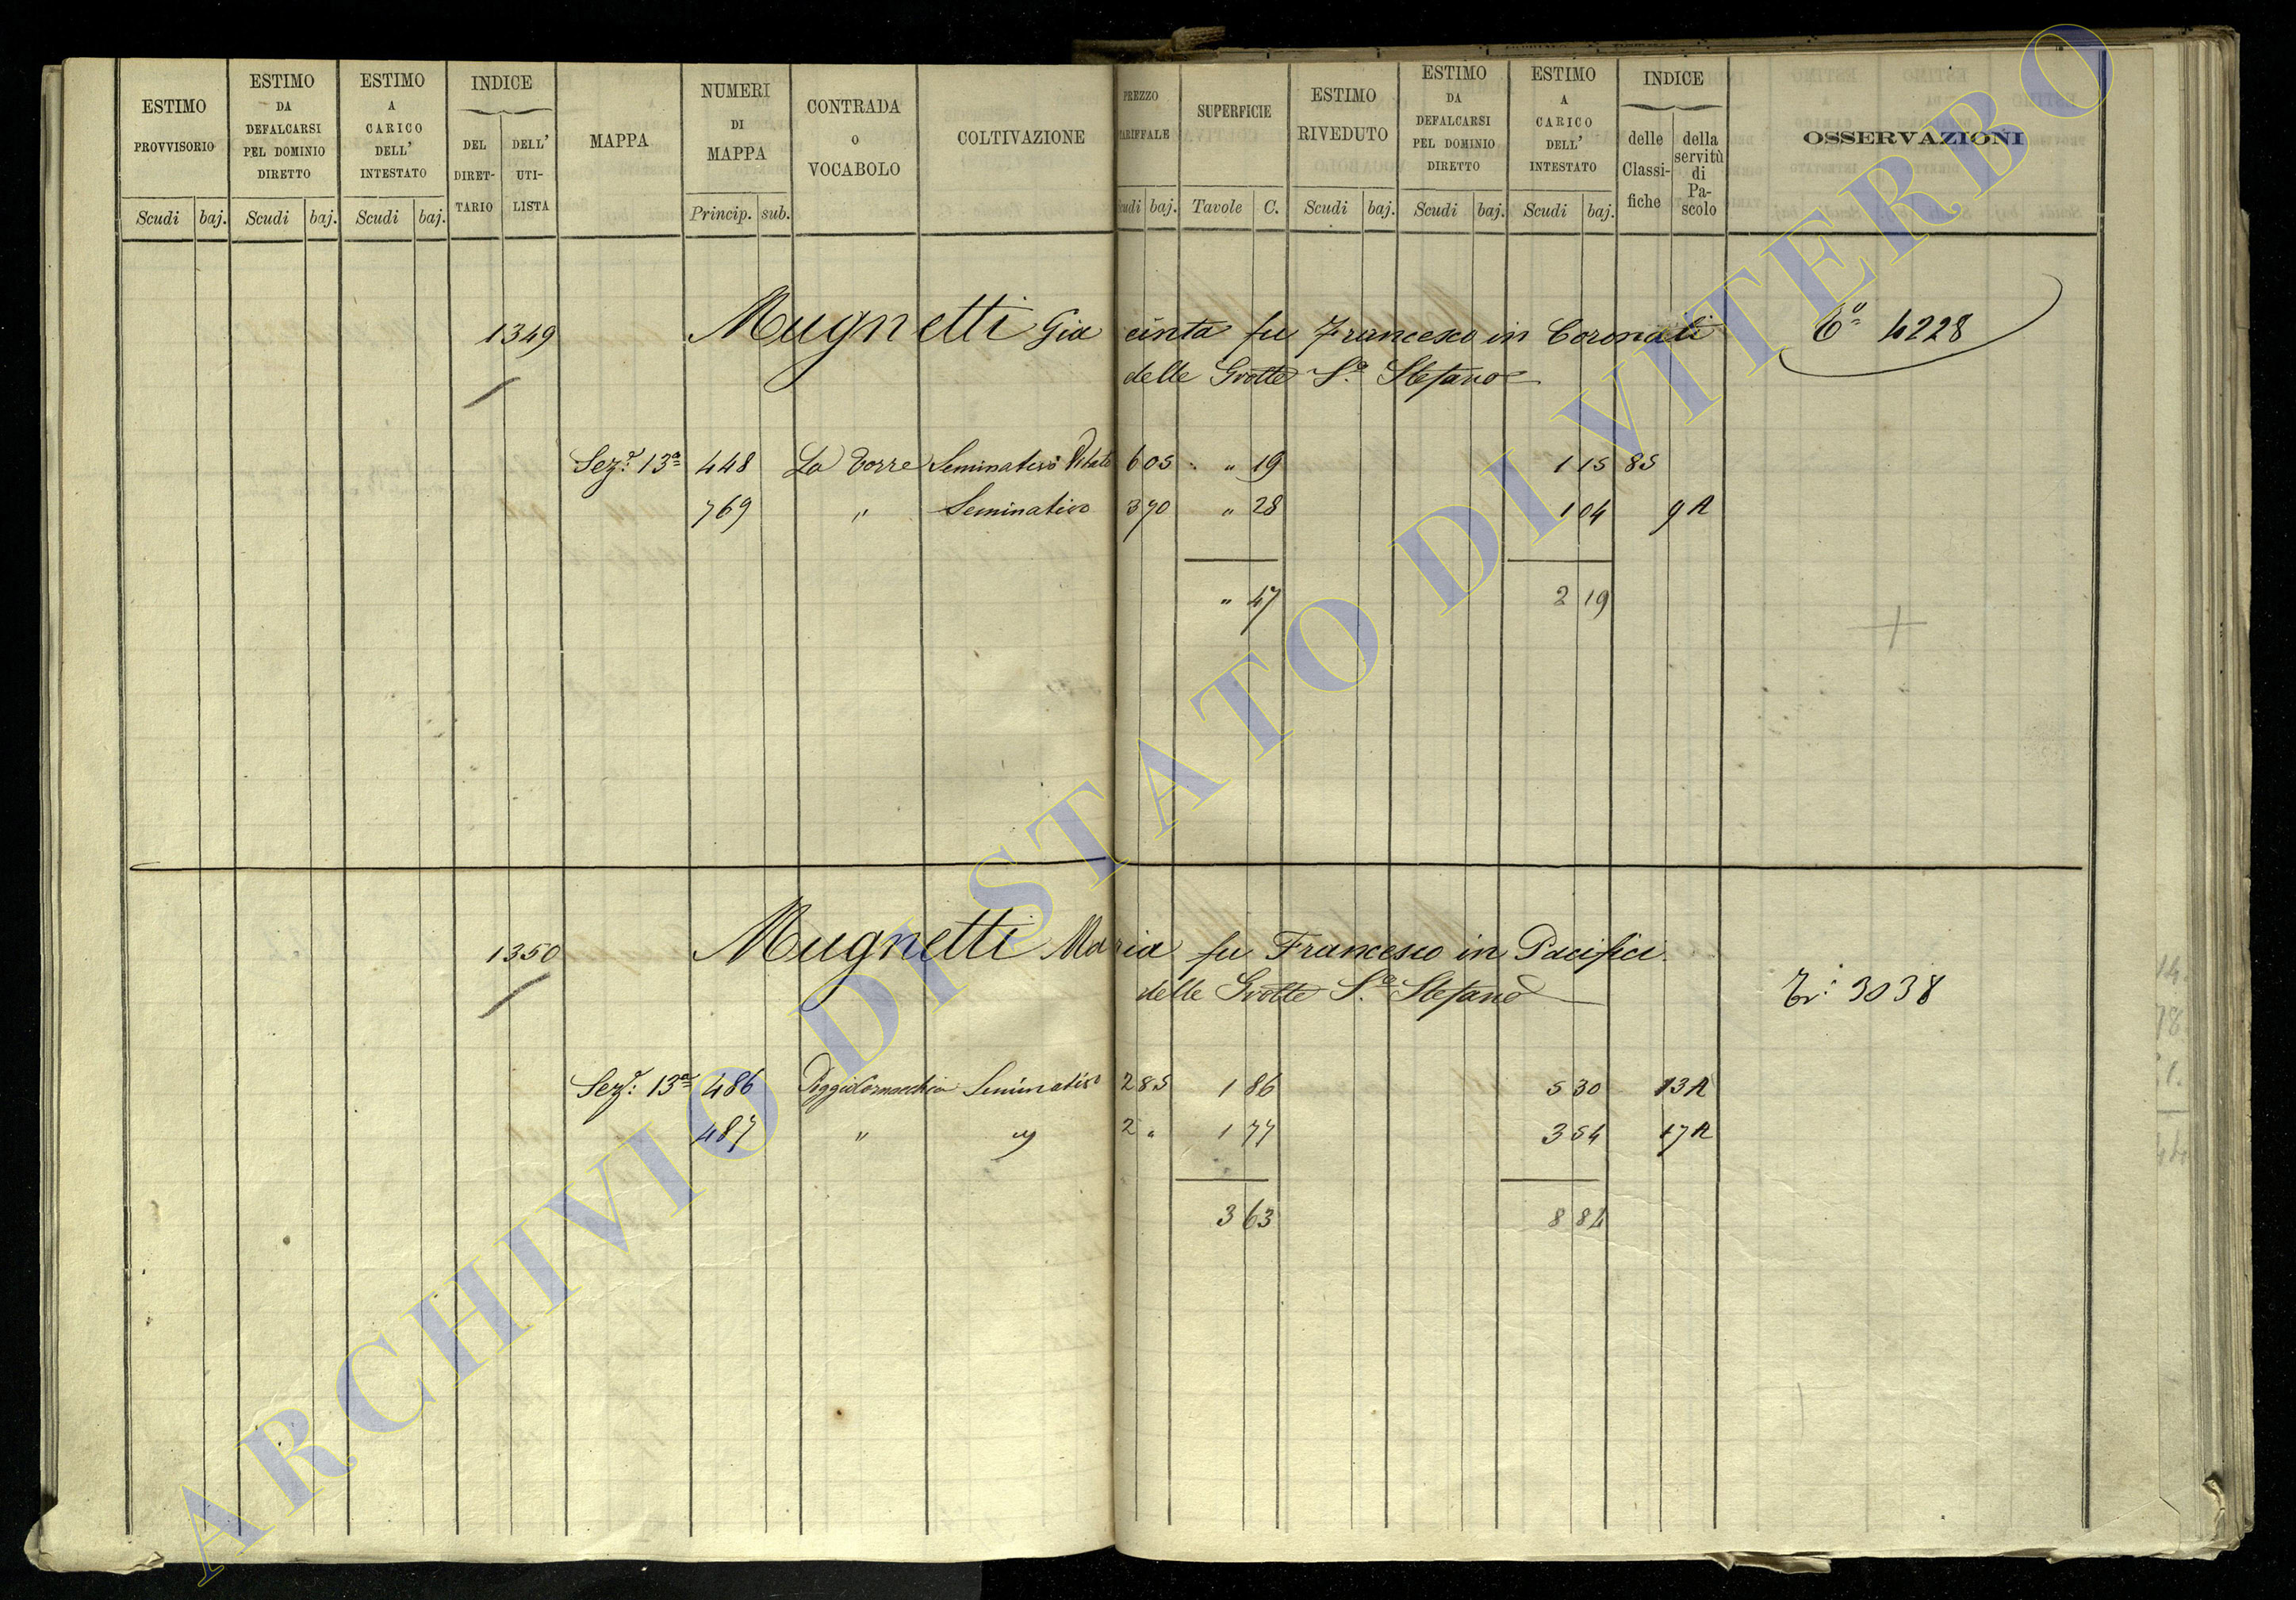 ESTIMO PROVVISORIO
Scudi baj.
ESTIMO DA DEFALCARSI PEL DOMINIO DIRETTO
Scudi baj.
ESTIMO A CARICO DELL' INTESTATO
Scudi baj.
INDICE
DEL DIRET-TARIO
DELL' UTI-LISTA
MAPPA
NUMERI DI MAPPA
Princip. sub.
CONTRADA O VOCABOLO
COLTIVAZIONE
PREZZO TARIFFALE
Scudi baj.
SUPERFICIE
Tavole C.
ESTIMO RIVEDUTO
Scudi baj.
ESTIMO DA DEFALCARSI PEL DOMINIO DIRETTO
Scudi baj.
ESTIMO A CARICO DELL' INTESTATO
Scudi baj.
INDICE
delle Classi-fiche
della servitù di Pa-scolo
OSSERVAZIONI
1349 Mugnetti Giacinta fu Francesco in Coronati 4228
delle Grotte S.º Stefano
Sez.e 13ª 448 La Torre Seminativo Vitato 6 05 " 19 1 15 85
769 " Seminativo 3 70 " 28 1 04 9 A
" 47 2 19
1350 Mugnetti Maria fu Francesco in Pacifici
delle Grotte S.º Stefano 3038
Sez.e 13ª 486 Seminativo 2 85 1 86 5 30 13 A
487 " " 2 " 1 77 3 54 17 A
3 63 8 84
ARCHIVIO DI STATO DI VITERBO